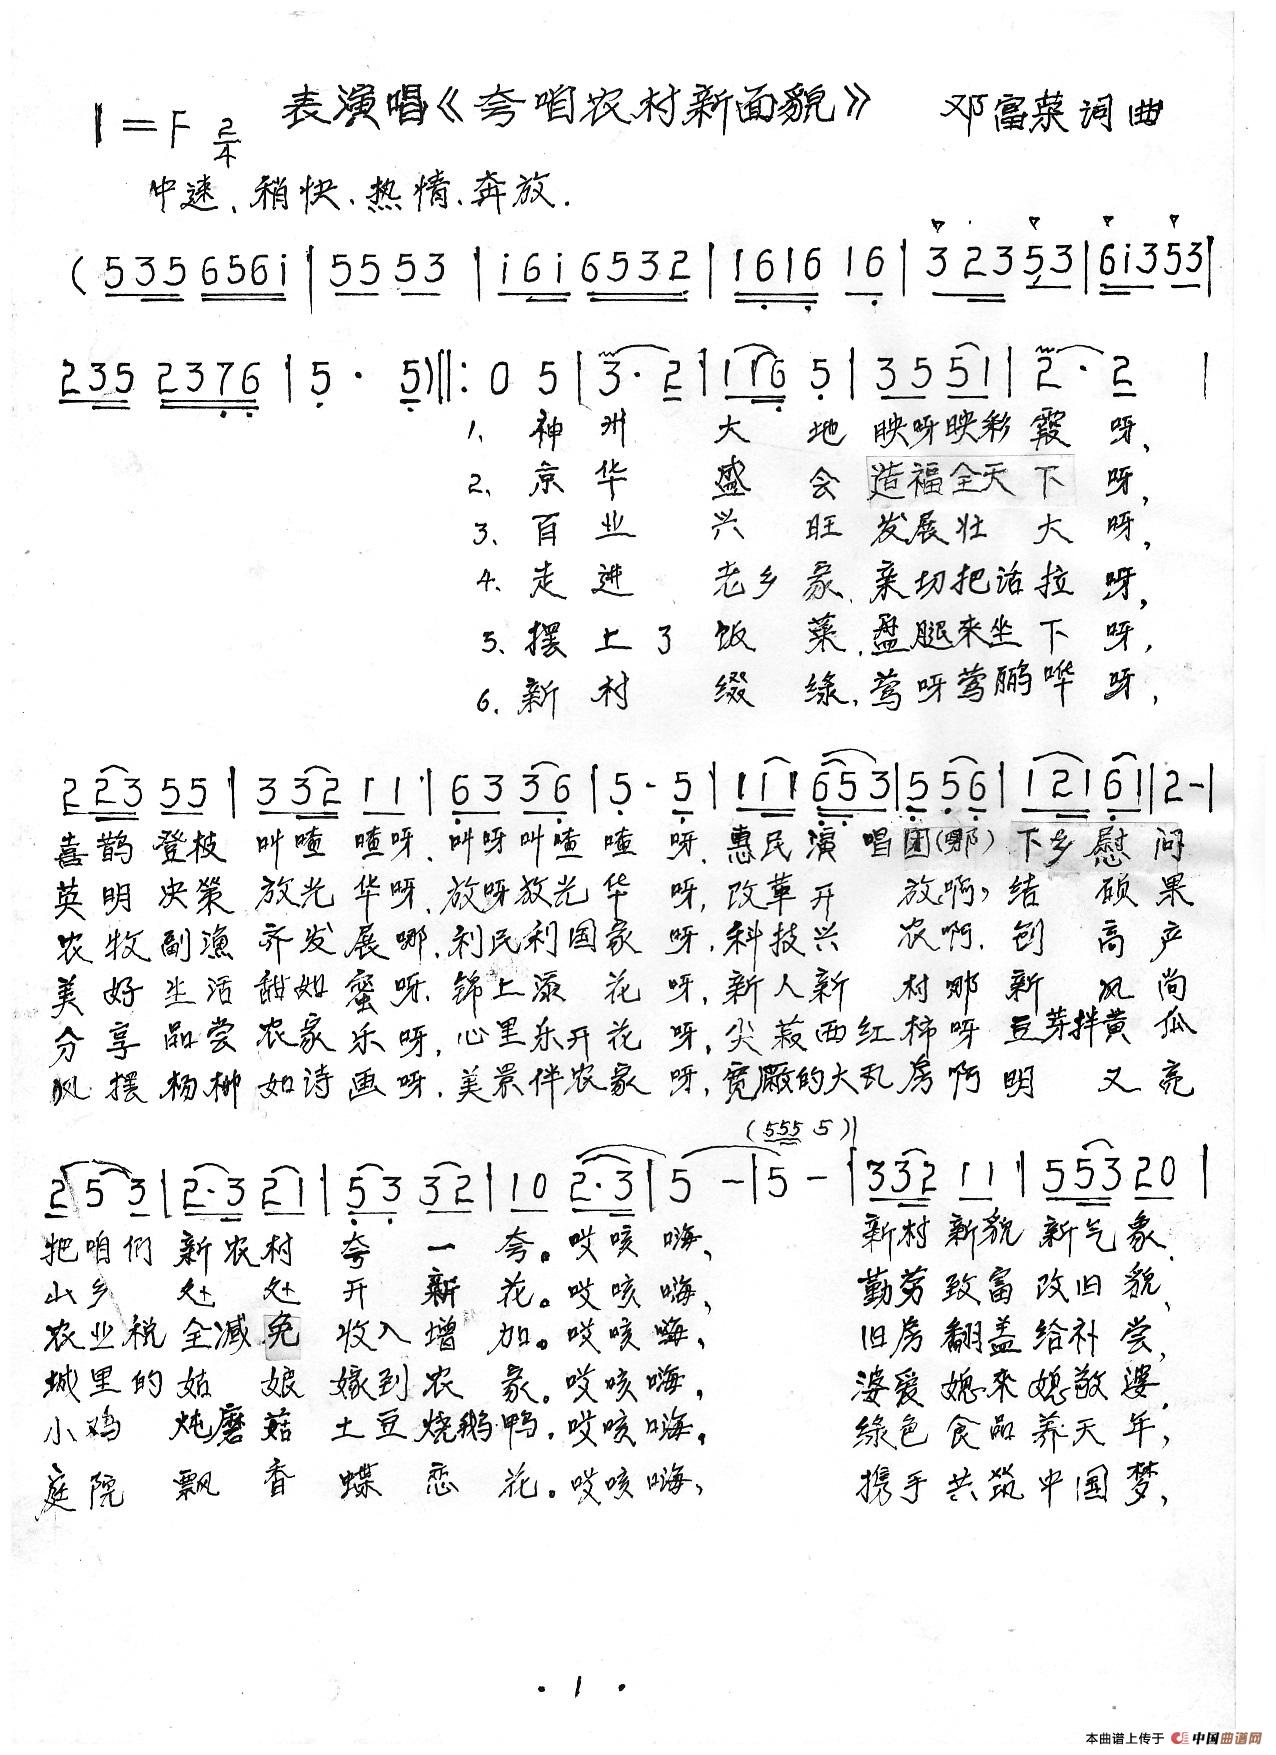 表演唱《夸咱农村新面貌》 邓富菜词曲
1=F 2/4
中速、稍快、热情、奔放.
(535 6561|55 53|161 6532|1616 16|323 53|6135 3|
235 2376|5· 5)‖:0 5|3· 2|116 5|35 51|2· 2|
1、神洲大地映呀映彩霞呀,
2、京华盛会造福全天下呀,
3、百业兴旺发展壮大呀,
4、走进老乡家、亲切把话拉呀,
5、摆上了饭菜,盘腿来坐下呀,
6、新村缀绿,莺呀莺鹂哗呀,
223 55|332 11|63 36|5· 5|111 653|5 56|121 61|2-|
喜鹊登枝叫喳喳呀、叫呀叫喳喳呀,惠民演唱团(哪)下乡慰问
英明决策放光华呀、放呀放光华呀,改革开放啊,结硕果
农牧副渔齐发展哪、利民利国家呀,科技兴农啊、创高产
美好生活甜如蜜呀、锦上添花呀,新人新村哪新风尚
分享品尝农家乐呀,心里乐开花呀,尖菽西红柿呀豆芽拌黄瓜
风摆杨柳如诗画呀、美景伴农家呀,宽厰的大瓦房啊明又亮
(555 5)
25 3|2·3 21|53 32|10 2·3|5 -|5 -|332 11|553 20|
把咱们新农村夸一夸。哎咳嗨、新村新貌新气象、
山乡处处开新花。哎咳嗨、勤劳致富改旧貌、
农业税全减免收入增加。哎咳嗨、旧房翻盖给补尝,
城里的姑娘嫁到农家。哎咳嗨,婆爱媳来媳敬婆,
小鸡炖磨菇土豆烧鹅鸭,哎咳嗨。绿色食品养天年,
庭院飘香蝶恋花。哎咳嗨,携手共筑中国梦,
·1·
本曲谱上传于 中国曲谱网